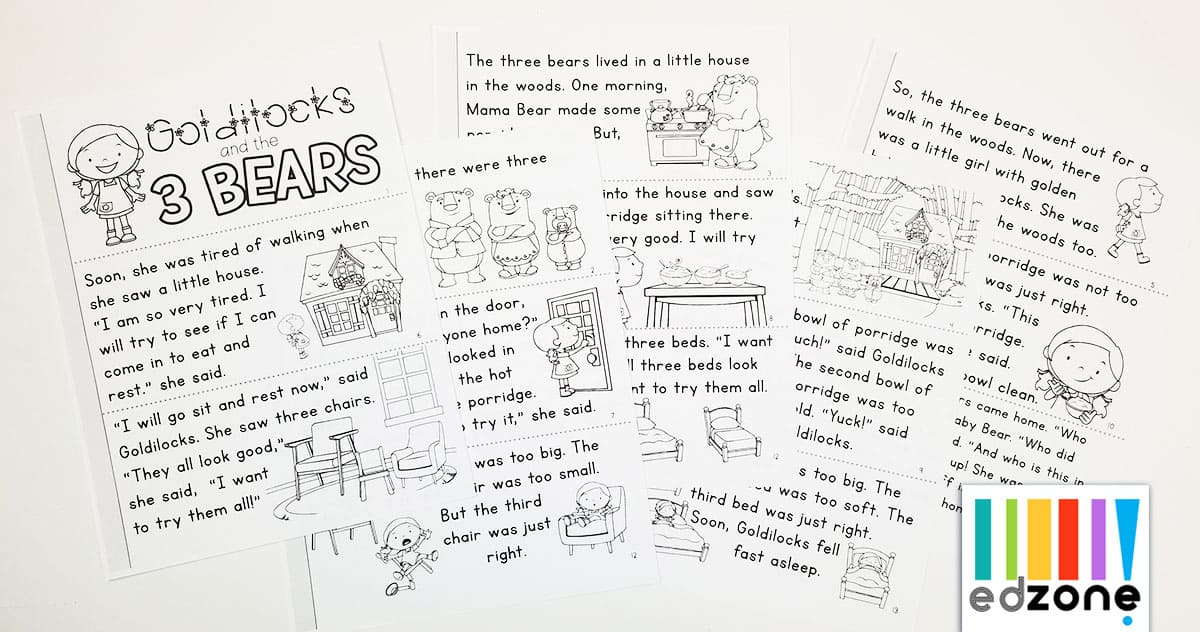 Goldilocks
and the
3 BEARS
1
Soon, she was tired of walking when
she saw a little house.
"I am so very tired. I
will try to see if I can
come in to eat and
rest." she said.
6
"I will go sit and rest now," said
Goldilocks. She saw three chairs.
"They all look good,"
she said, "I want
to try them all!"
there were three
2
n the door,
yone home?"
looked in
the hot
porridge.
try it," she said.
7
was too big. The
ir was too small.
But the third
chair was just
right.
12
The three bears lived in a little house
in the woods. One morning,
Mama Bear made some
But,
3
into the house and saw
rridge sitting there.
very good. I will try
8
three beds. "I want
ll three beds look
nt to try them all.
s.
t
4
bowl of porridge was
uch!" said Goldilocks
he second bowl of
orridge was too
ld. "Yuck!" said
ldilocks.
9
s too big. The
was too soft. The
third bed was just right.
Soon, Goldilocks fell
fast asleep.
So, the three bears went out for a
walk in the woods. Now, there
was a little girl with golden
ocks. She was
he woods too.
5
porridge was not too
was just right.
ks. "This
rridge.
said.
owl clean.
10
rs came home. "Who
aby Bear. "Who did
d. "And who is this in
up! She was
edzone!